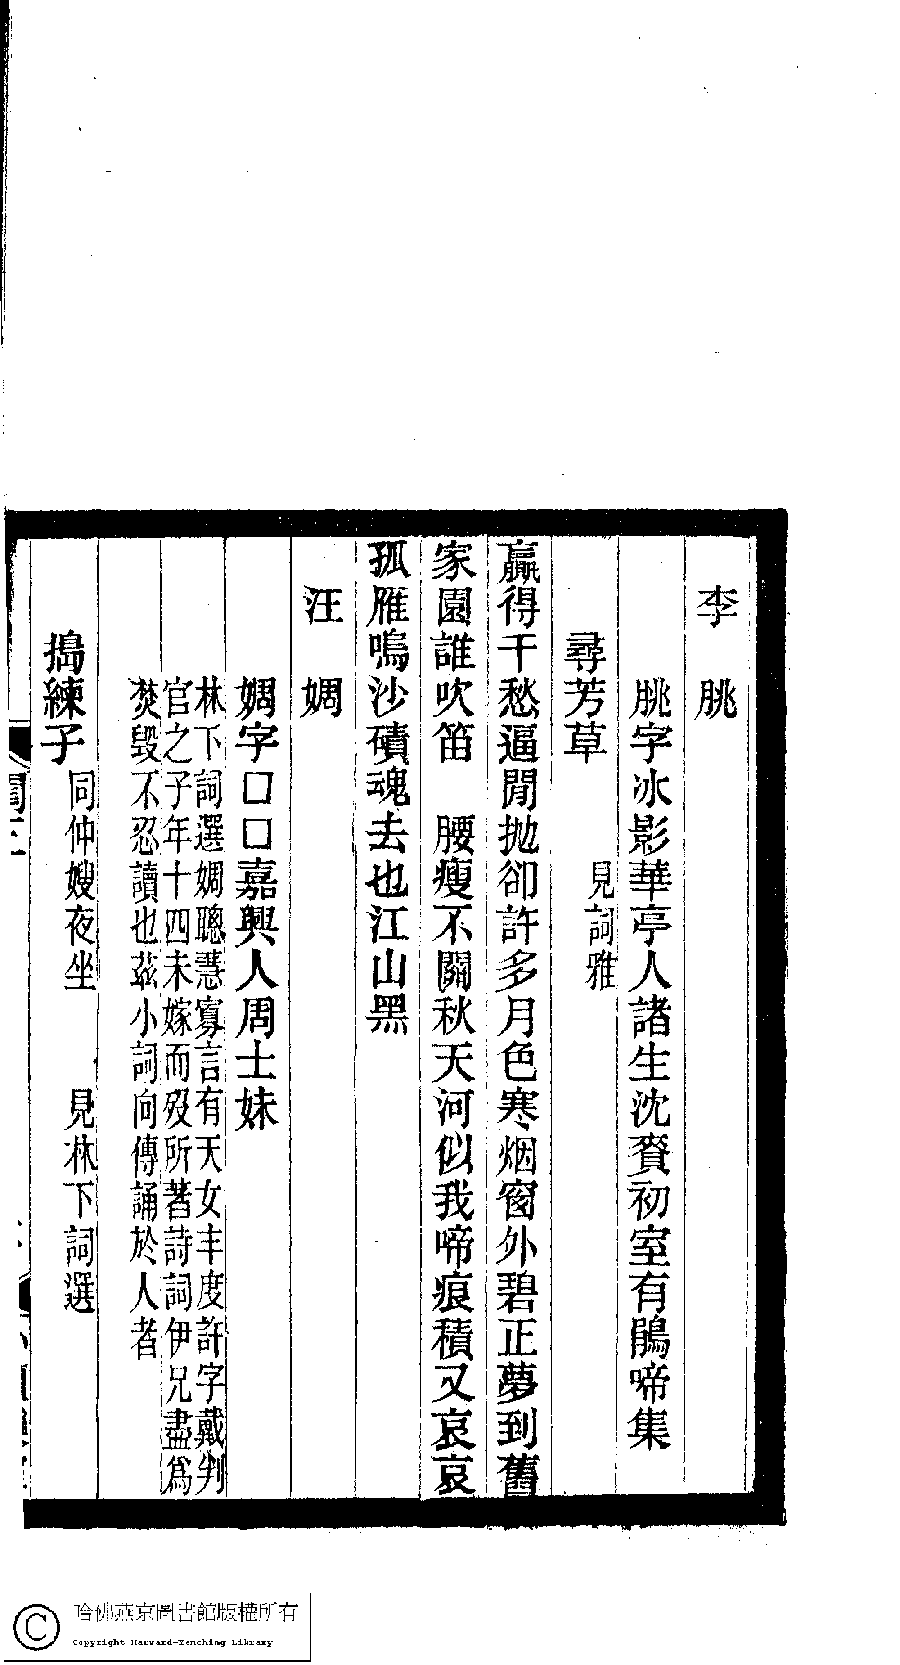 李　朓
朓字冰影華亭人諸生沈賚初室有鵑啼集
尋芳草　見詞雅
贏得千愁逼閒拋卻許多月色寒烟窗外碧正夢到舊
家園誰吹笛　腰瘦不關秋天河似我啼痕積又哀哀
孤雁嗚沙磧魂去也江山黑
汪　嫻
嫻字□□嘉興人周士妹
林下詞選嫻聰慧寡言有天女丰度許字戴判
官之子年十四未嫁而歿所著詩詞伊兄盡爲
焚毀不忍讀也茲小詞向傳誦於人者
搗練子　同仲嫂夜坐　見林下詞選
哈佛燕京圖書館版權所有
Copyright Harvard-Yenching Library